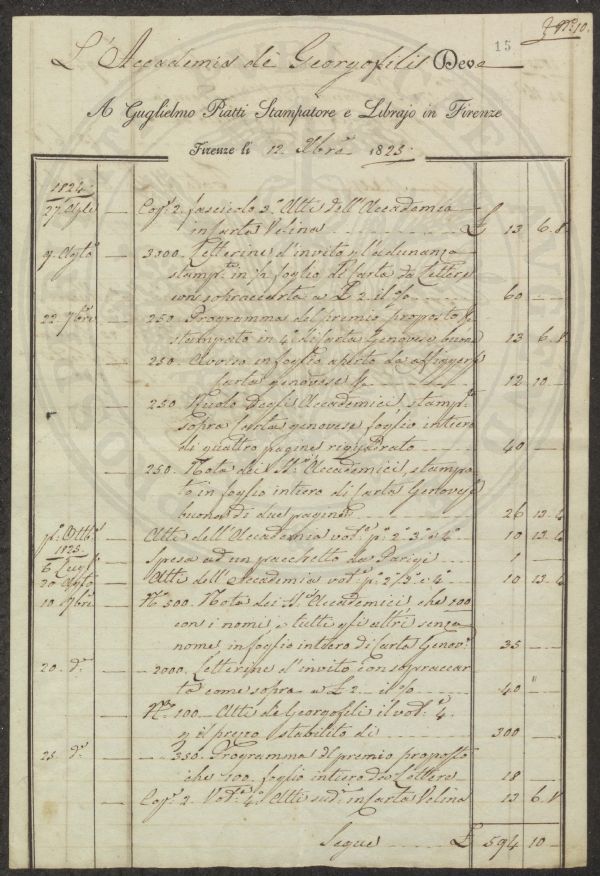 N° 10.
15
L'Accademia de Georgofili Deve
A Guglielmo Piatti Stampatore e Librajo in Firenze
Firenze li 12 Xbre 1825
1824.
27 Ap.le — Cop.e 2. fascicolo 3° Atti dell'Accademia
in Carta Velina £ 13 6. 8
9. Ag.to — 3000. Letterine d'invito p l'adunanza
stamp.te in ½ foglio di Carta da Lettere
con sopraccarta a £ 2. il % 60 —
22. 7bre — 250. Programma del premio proposto
stampato in 4° di Carta Genovese buona 13 6. 8
— 250. Avviso in foglio aperto da affiggersi
Carta genovese 12 10 —
— 250 Ruolo degli Accademici, stamp.
sopra Carta genovese foglio intiero
di quattro pagine riquadrato 40 —
— 250. Nota dei SS.ri Accademici, stampa
ta in foglio intiero di Carta Genovese
buona di due pagine 26 13. 4
p.o Ottb.e — Atti dell'Accademia vol.i p.o 2° 3° e 4° 10 13. 4
1825.
6 Lug.o — Spesa ad un pacchetto da Parigi 1 —
20. Ag.to — Atti dell'Accademia vol.i p.o 2° 3° e 4° 10 13. 4
10. 7bre — N° 500. Nota dei SS.ri Accademici, che 100
con i nomi, e tutti gli altri senza
nome, in foglio intiero di Carta Genov.e 35 —
20. d.o — 2000. Letterine d'invito con sopraccar
ta come sopra a £ 2 il % 40 "
N° 100. Atti de Georgofili il vol.e 4.
p il prezzo stabilito di 300 —
25. d.o — 350. Programma del premio proposto
che 100. foglio intiero da Lettere 18 —
— Cop.e 2. Vol.e 4° Atti sud.i in Carta Velina 13 6. 8
Segue £ 594 10 —